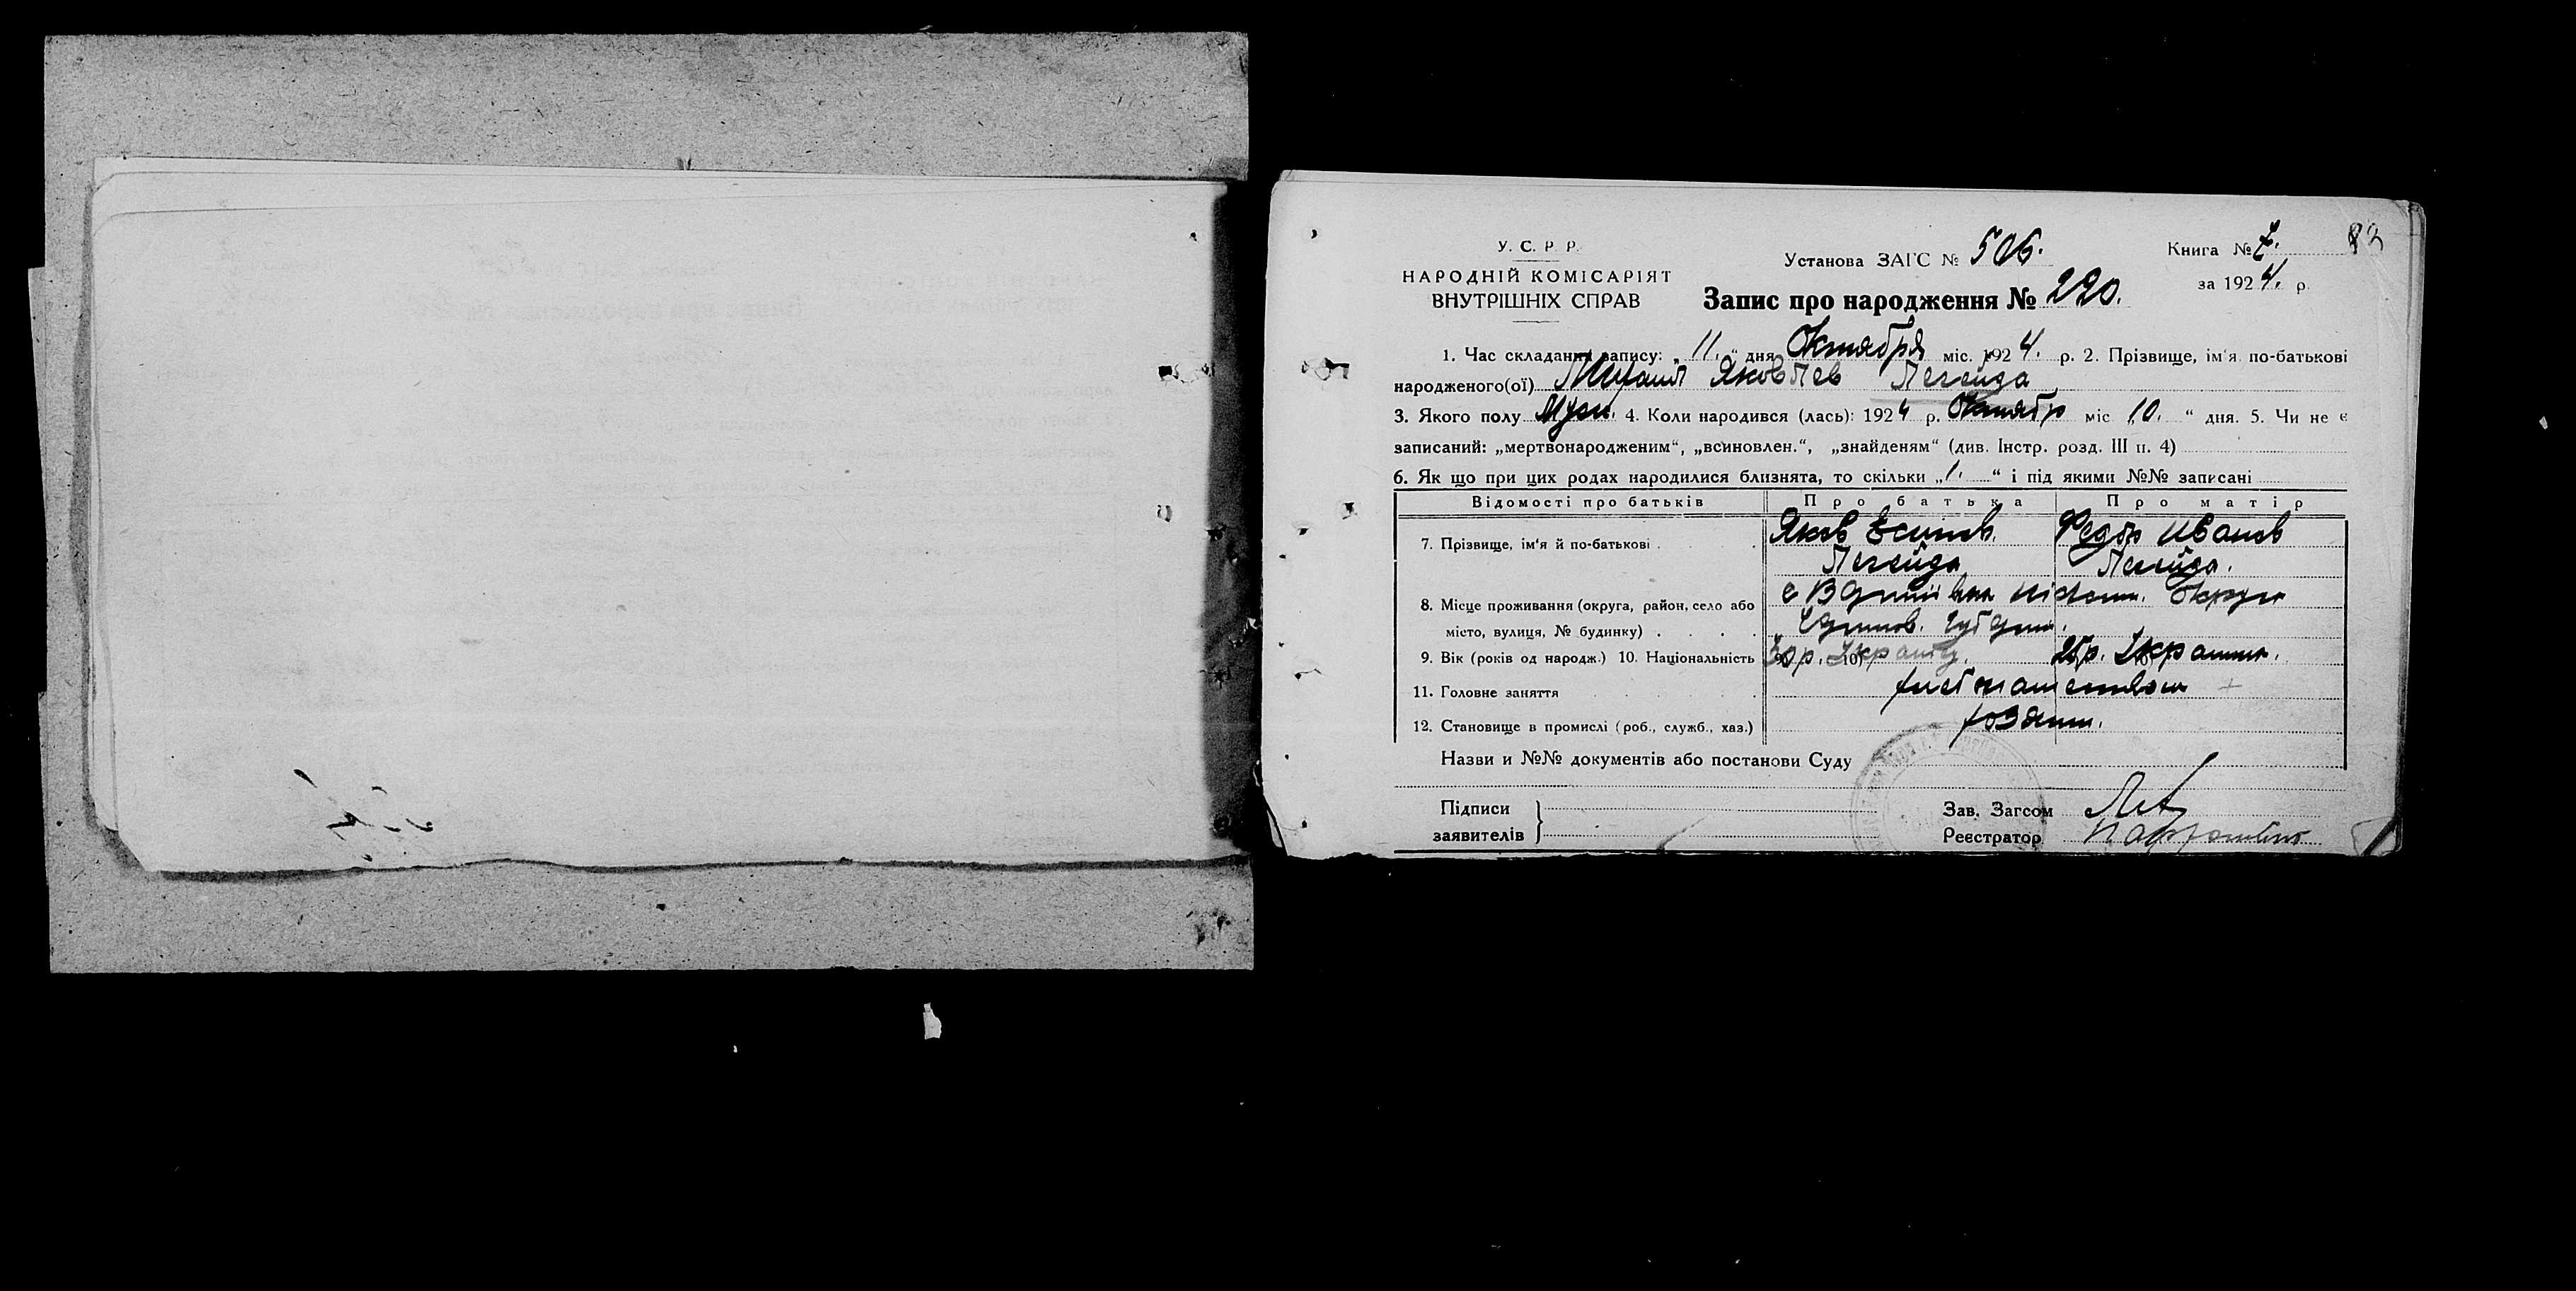 У. С. Р. Р.
НАРОДНІЙ КОМІСАРІЯТ
ВНУТРІШНІХ СПРАВ
Установа ЗАГС № 506.
Книга № 7.
за 1924. р.
Запис про народження № 220.
1. Час складання запису: „11.“ дня Октября міс. 1924. р. 2. Прізвище, ім'я по-батькові
народженого(ої) Михаил Яковлев Легейда
3. Якого полу Муж. 4. Коли народився (лась): 1924 р. Октябр міс 10. “ дня. 5. Чи не є
записаний: „мертвонародженим“, „всиновлен.“, „знайденям“ (див. Інстр. розд. III п. 4)
6. Як що при цих родах народилися близнята, то скільки „1.“ і під якими №№ записані
Відомості про батьків Про батька Про матір
7. Прізвище, ім'я й по-батькові . Яков Есипов. Федор Иванов
Легейда Легейда.
8. Місце проживання (округа, район, село або округи
місто, вулиця, № будинку) . . . .
9. Вік (років од народж.) 10. Національність 30 р. 10) Украин. р. Украин.
11. Головне заняття хлебопашеством
12. Становище в промислі (роб., служб., хаз.) хозяин.
Назви и №№ документів або постанови Суду
Підписи
заявителів
Зав. Загсом
Реєстратор